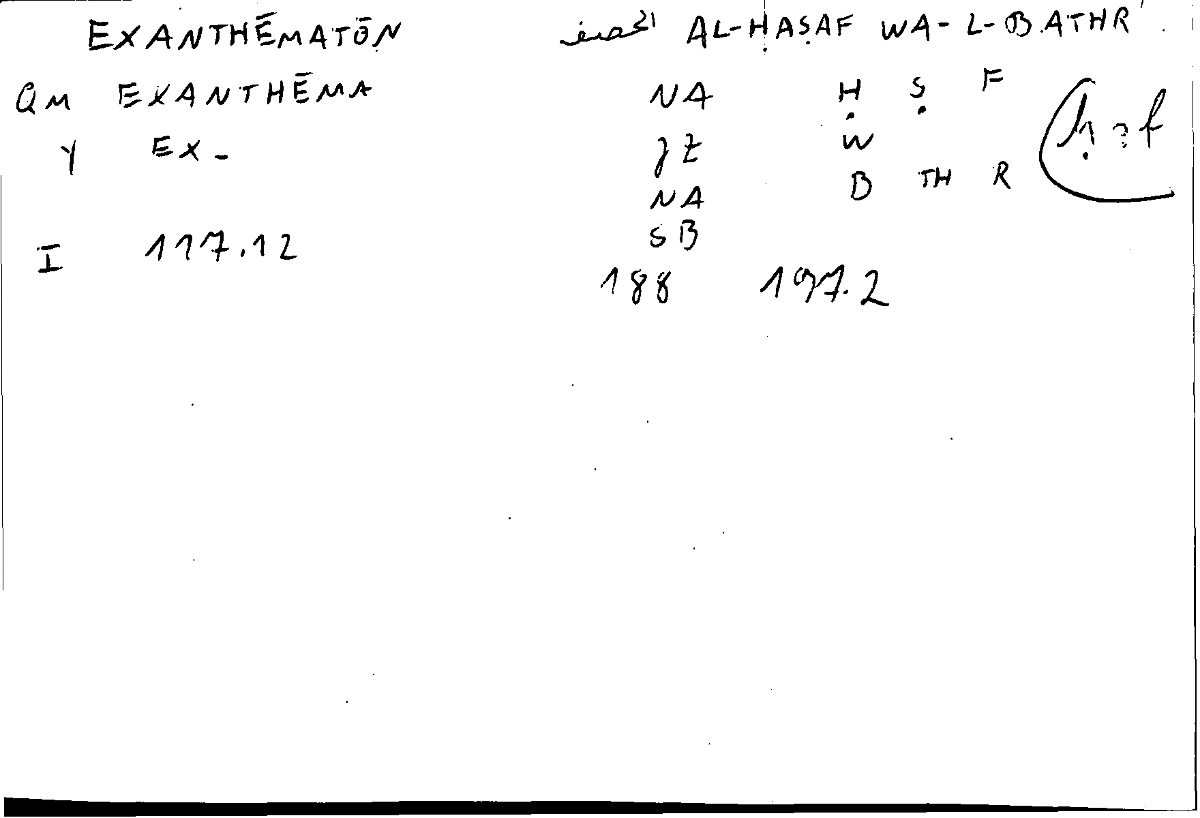 EXANTHĒMATŌN الحصف AL-ḤAṢAF WA-L-BATHR
QM EXANTHĒMA NA Ḥ Ṣ F
Y EX- JZ W
NA B TH R
I 117.12 SB
188 197.2